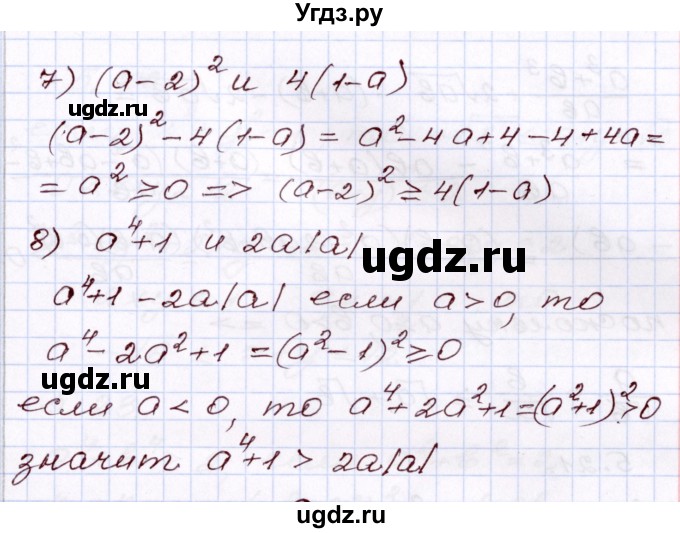 Угдз.ру
7) (a-2)² и 4(1-a)
ugdz.ru
(a-2)²-4(1-a) = a²-4a+4-4+4a=
= a²≥0 => (a-2)²≥4(1-a)
8) a⁴+1 и 2a|a|
ugdz.ru
a⁴+1-2a|a| если a>0, то
a⁴-2a²+1=(a²-1)²≥0
ugdz.ru
если a<0, то a⁴+2a²+1=(a²+1)²>0
значит a⁴+1 > 2a|a|
ugdz.ru